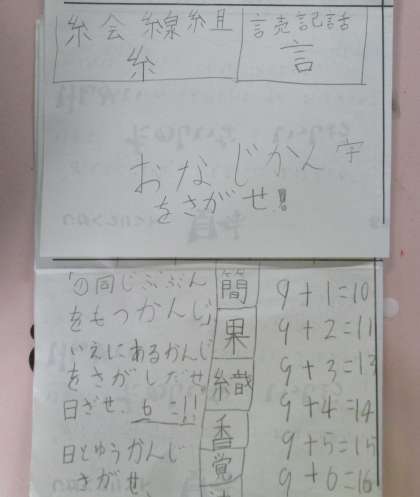 絵 線 組
糸
言売 記 話
言
おなじかん字
をさがせ!
①同じぶぶん
をもつかんじ」
いえにあるかんじ
をさがしだせ
日ざせ、6こ!!
日とゆうかんじ
さがせ、
簡
果
織
香
覚
9+1=10
9+2=11
9+3=13
9+4=14
9+5=15
9+6=16